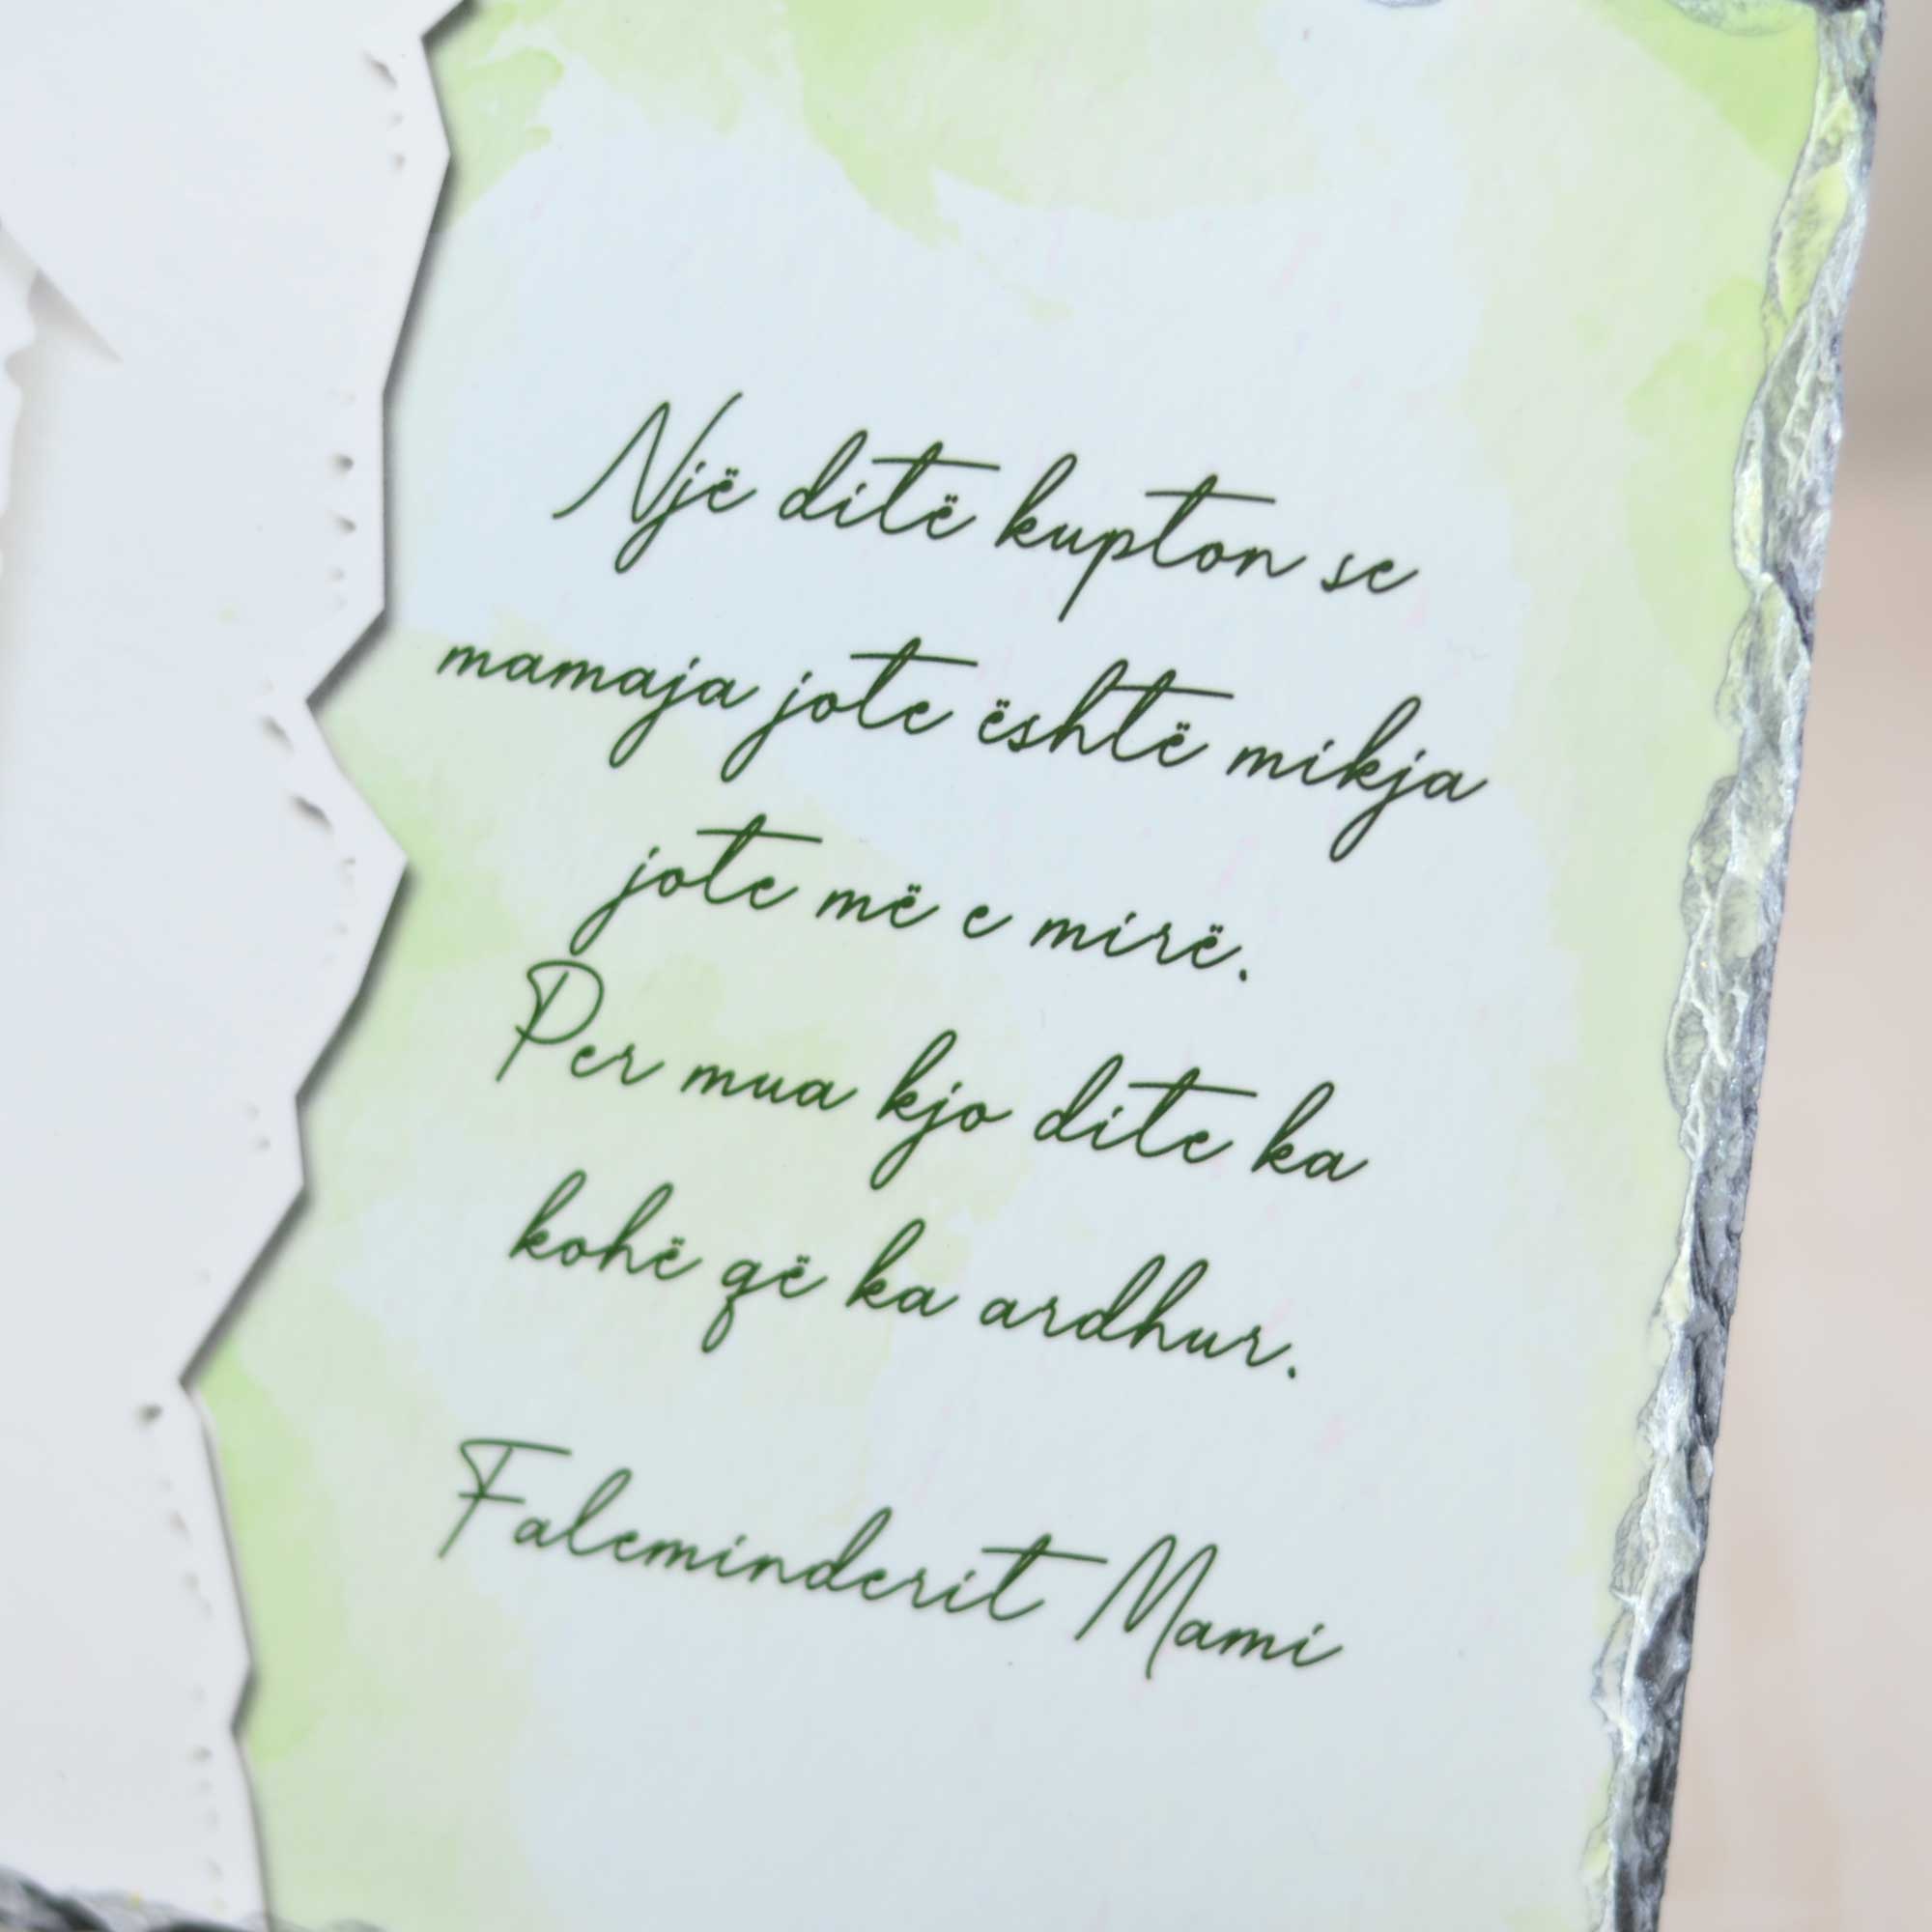 Një ditë kupton se
mamaja jote është mikja
jote më e mirë.
Per mua kjo dite ka
kohë që ka ardhur.
Faleminderit Mami